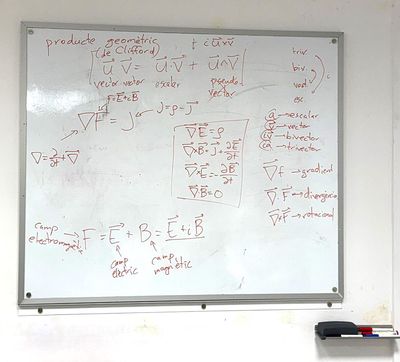 producte geomètric
(de Clifford)
+ i u⃗×v⃗
u⃗ v⃗ = u⃗·v⃗ + u⃗∧v⃗
vector vector escalar pseudo-
vector
triv.
biv.
vect.
esc
F=E⃗+iB⃗
∇F = J
J=ρ-J⃗
∇=∂/∂t+∇⃗
∇⃗E⃗=ρ
∇⃗×B⃗=J⃗+∂E⃗/∂t
∇⃗×E⃗=-∂B⃗/∂t
∇⃗B⃗=0
a → escalar
v⃗ → vector
iv⃗ → bivector
ia → trivector
∇⃗f → gradient
∇⃗·F⃗ → divergència
∇⃗×F⃗ → rotacional
camp
electromagnètic → F = E⃗ + B = E⃗+iB⃗
camp
elèctric
camp
magnètic